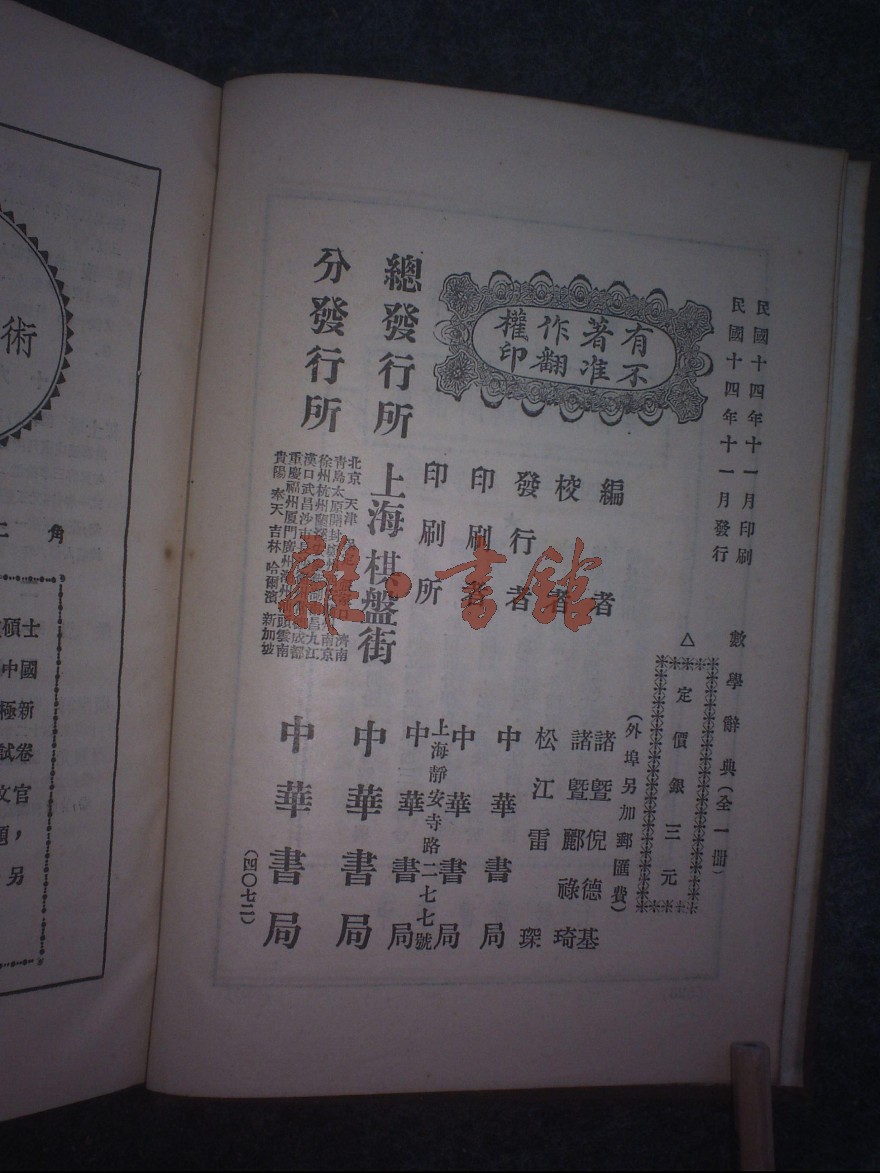 民國十四年十一月印刷
民國十四年十一月發行
數學辭典(全一冊)
△定價銀三元
(外埠另加郵匯費)
有著作權
不准翻印
編者
諸暨倪德基
諸暨酈祿琦
校者
松江雷琛
發行者
中華書局
印刷者
中華書局
印刷所
上海靜安寺路二七七號
中華書局
總發行所
上海棋盤街
中華書局
分發行所
北京 天津 濟南
青島太原開封 南京
徐州杭州 九江
漢口武昌沙市 成都
重慶福州厦門廣州 汕頭雲南
貴陽 奉天 吉林 哈爾濱 新加坡
中華書局
(四〇七二)
雜·書館
術
二角
碩士
中國
極新
試卷
文官
題,
另